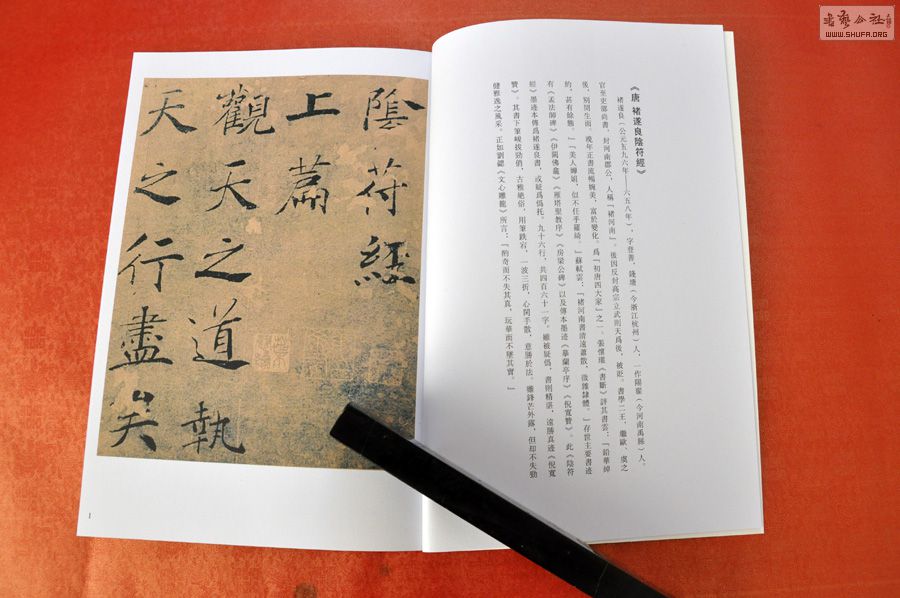 《唐 褚遂良陰符經》
褚遂良（公元五九六年——六五八年），字登善，錢塘（今浙江杭州）人，一作陽翟（今河南禹縣）人。
官至吏部尚書，封河南郡公，人稱「褚河南」。後因反封高宗立武則天爲後，被貶。書學二王，繼歐、虞之
後，別開生面。晚年正書流暢婉美，富於變化。爲「初唐四大家」之一。張懷瓘《書斷》評其書雲：「鉛華綽
約，甚有餘態。」「美人嬋娟，似不任乎羅綺。」蘇軾雲：「褚河南書清遠蕭散，微雜隸體。」存世主要書迹
有《孟法師碑》《伊闕佛龕》《雁塔聖教序》《房梁公碑》以及傳本墨迹《摹蘭亭序》《倪寬贊》。此《陰符
經》墨迹本傳爲褚遂良書，或疑爲僞托。九十六行，共四百六十一字。雖被疑僞，書則精湛，遠勝真迹《倪寬
贊》。其書下筆峻拔勁俏，古雅絶俗，用筆跌宕，一波三折，心閑手散，意勝於法，雖鋒芒外露，但却不失勁
健雅逸之風采。正如劉勰《文心雕龍》所言：「酌奇而不失其真，玩華而不墜其實。」
陰符經
上篇
觀天之道執
天之行盡矣
1
書藝公社
WWW.SHUFA.ORG